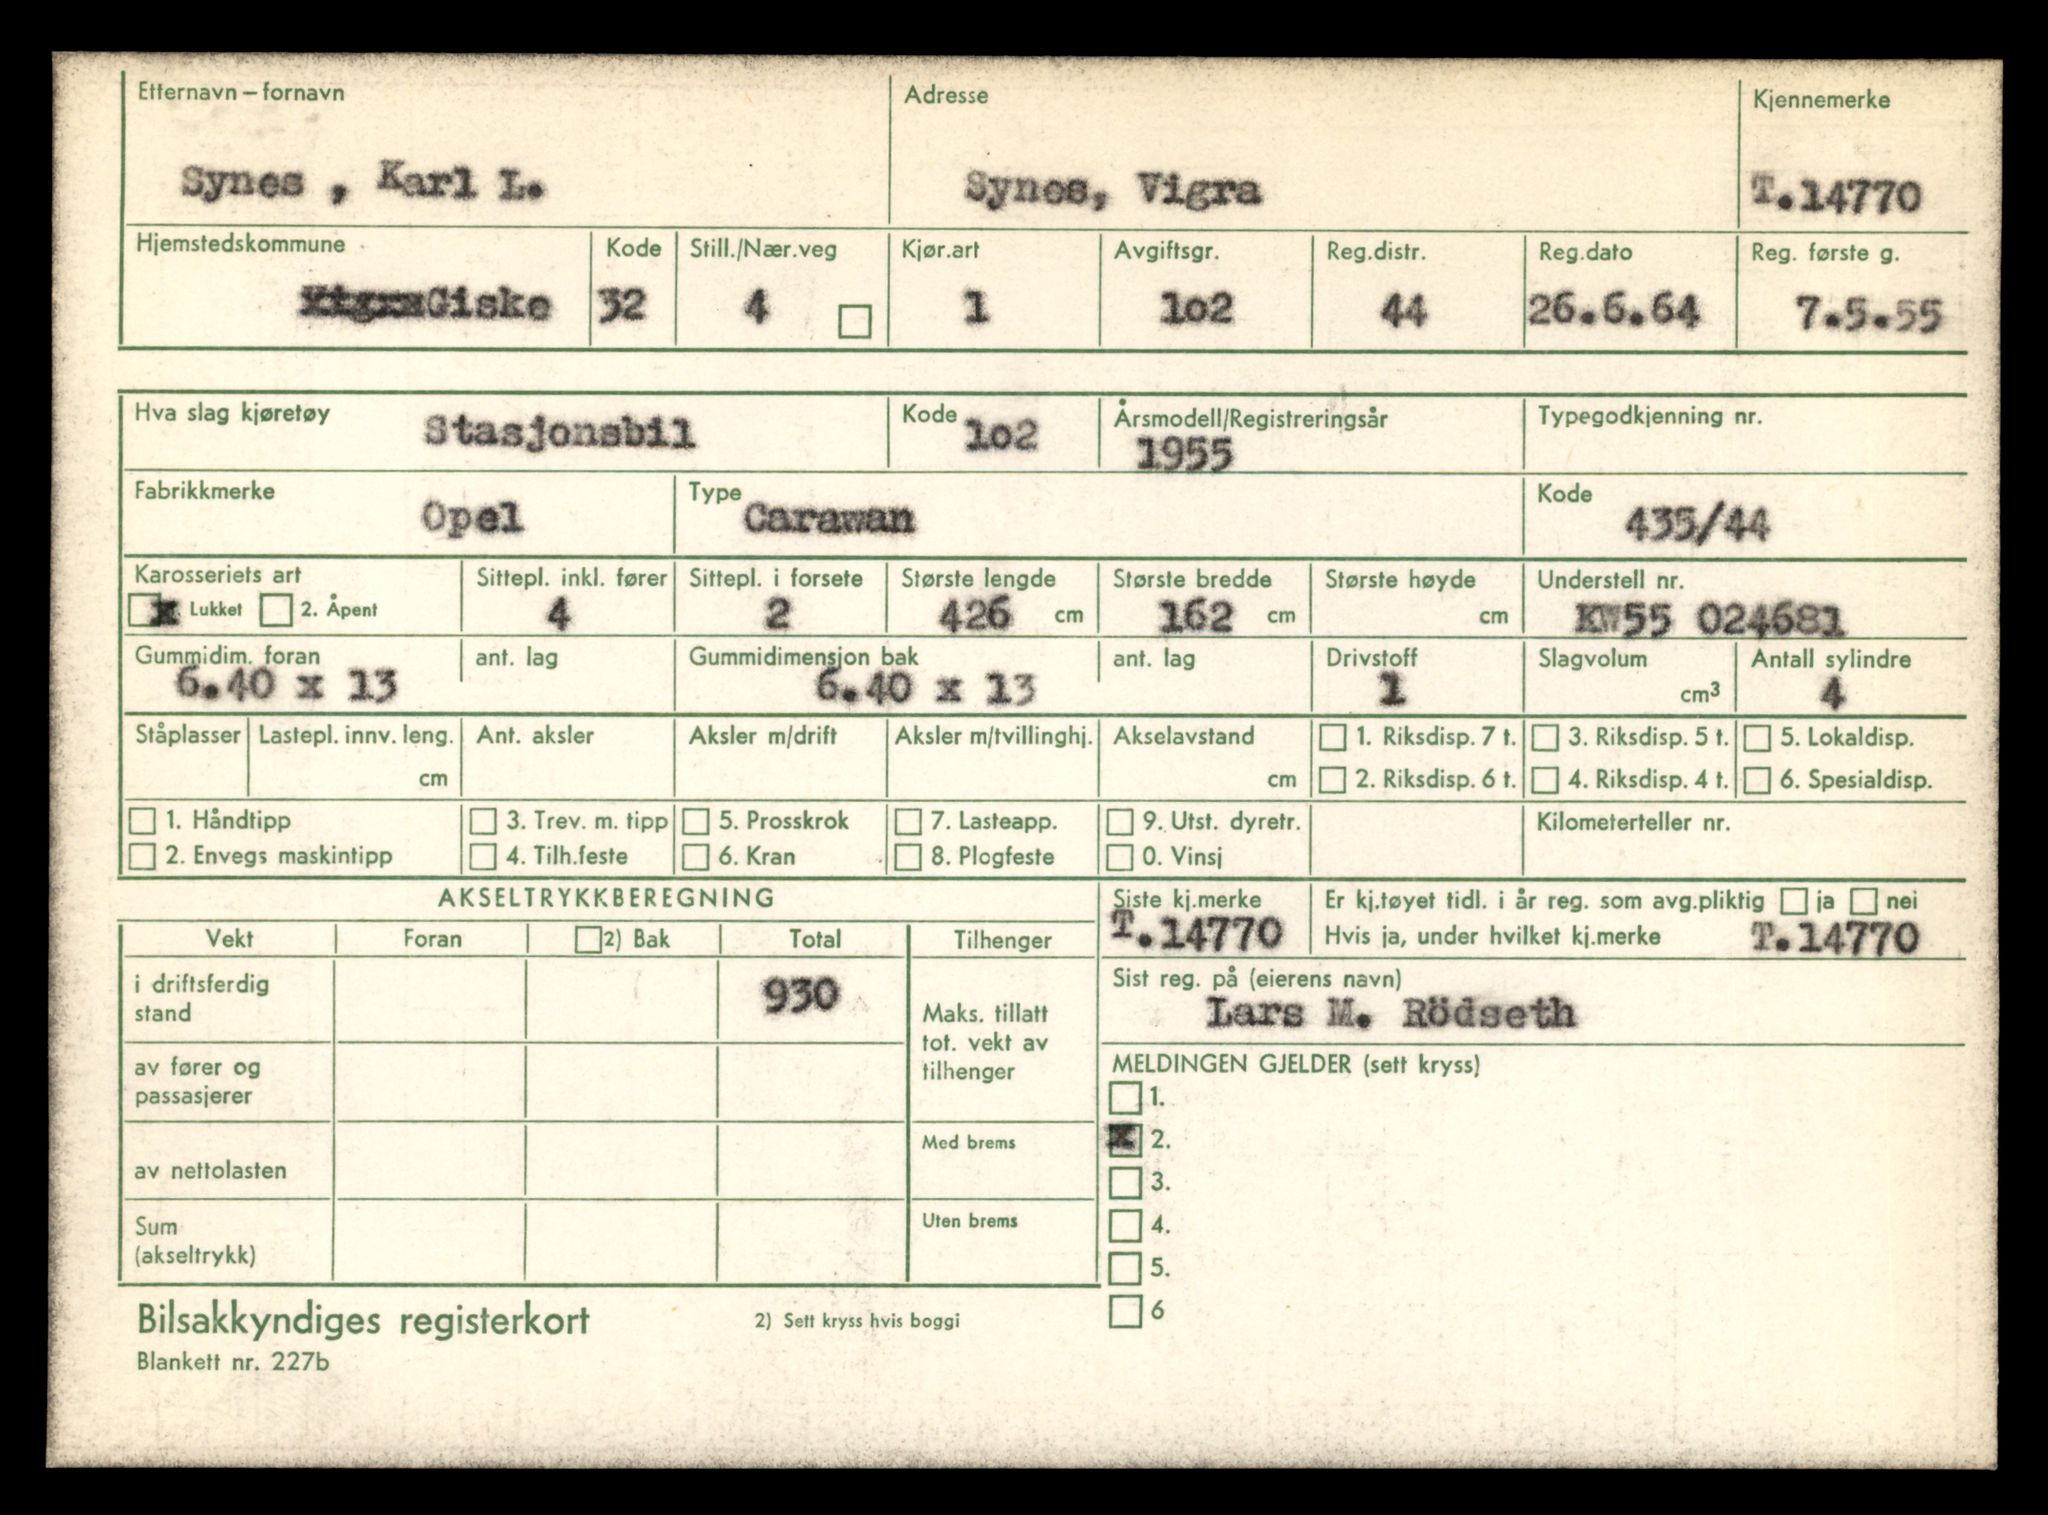 Etternavn – fornavn Adresse Kjennemerke
Synes , Karl L. Synes, Vigra T.14770
Hjemstedskommune Kode Still./Nær.veg Kjør.art Avgiftsgr. Reg.distr. Reg.dato Reg. første g.
Vigra Giske 32 4 1 1o2 44 26.6.64 7.5.55
Hva slag kjøretøy Stasjonsbil Kode 1o2 Årsmodell/Registreringsår 1955 Typegodkjenning nr.
Fabrikkmerke Opel Type Carawan Kode 435/44
Karosseriets art Sittepl. inkl. fører Sittepl. i forsete Største lengde Største bredde Største høyde Understell nr.
x Lukket 2. Åpent 4 2 426 cm 162 cm cm KW55 024681
Gummidim. foran ant. lag Gummidimensjon bak ant. lag Drivstoff Slagvolum Antall sylindre
6.40 x 13 6.40 x 13 1 cm3 4
Ståplasser Lastepl. innv. leng. Ant. aksler Aksler m/drift Aksler m/tvillinghj. Akselavstand 1. Riksdisp. 7 t. 3. Riksdisp. 5 t. 5. Lokaldisp.
cm cm 2. Riksdisp. 6 t. 4. Riksdisp. 4 t. 6. Spesialdisp.
1. Håndtipp 3. Trev. m. tipp 5. Prosskrok 7. Lasteapp. 9. Utst. dyretr. Kilometerteller nr.
2. Envegs maskintipp 4. Tilh.feste 6. Kran 8. Plogfeste 0. Vinsj
AKSELTRYKKBEREGNING
Vekt Foran 2) Bak Total Tilhenger
i driftsferdig stand 930
av fører og passasjerer
av nettolasten
Sum (akseltrykk)
Maks. tillatt
tot. vekt av
tilhenger
Med brems
Uten brems
Siste kj.merke Er kj.tøyet tidl. i år reg. som avg.pliktig ja nei
T.14770 Hvis ja, under hvilket kj.merke T.14770
Sist reg. på (eierens navn)
Lars M. Rödseth
MELDINGEN GJELDER (sett kryss)
1.
x 2.
3.
4.
5.
6
Bilsakkyndiges registerkort 2) Sett kryss hvis boggi
Blankett nr. 227b